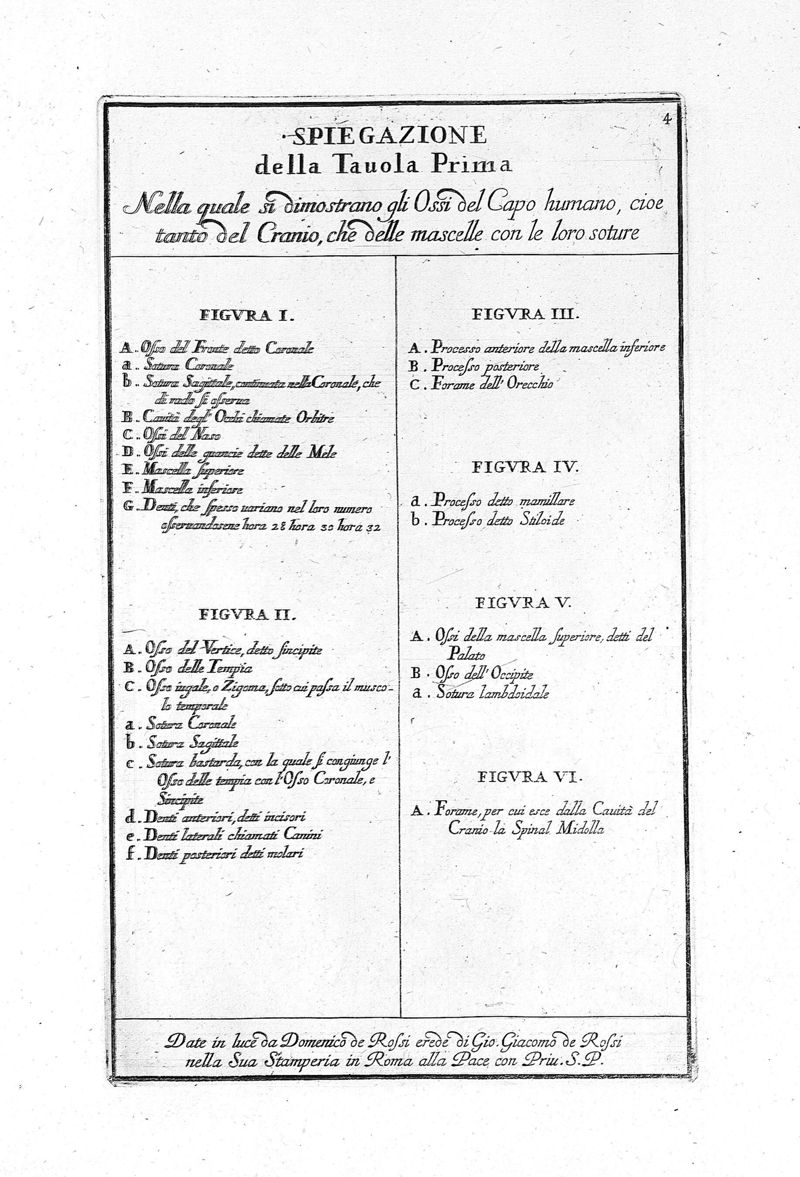 4
SPIEGAZIONE
della Tauola Prima
Nella quale si dimostrano gli Ossi del Capo humano, cioe
tanto del Cranio, che delle mascelle con le loro soture
FIGVRA I.
A. Osso del Fronte detto Coronale
a. Sotura Coronale
b. Sotura Sagittale, continuata nella Coronale, che
di rado si osserua
B. Cauità degl' Occhi chiamate Orbitre
C. Ossi del Naso
D. Ossi delle guancie dette delle Mele
E. Mascella superiore
F. Mascella inferiore
G. Denti, che spesso uariano nel loro numero
osseruandosene hora 28 hora 30 hora 32
FIGVRA II.
A. Osso del Vertice, detto sincipite
B. Osso delle Tempia
C. Osso iugale, o Zigoma, sotto cui passa il musco-
lo temporale
a. Sotura Coronale
b. Sotura Sagittale
c. Sotura bastarda, con la quale si congiunge l'
Osso delle tempia con l'Osso Coronale, e
Sincipite
d. Denti anteriori, detti incisori
e. Denti laterali chiamati Canini
f. Denti posteriori detti molari
FIGVRA III.
A. Processo anteriore della mascella inferiore
B. Processo posteriore
C. Forame dell' Orecchio
FIGVRA IV.
a. Processo detto mamillare
b. Processo detto Stiloide
FIGVRA V.
A. Ossi della mascella superiore, detti del
Palato
B. Osso dell' Occipite
a. Sotura lambdoidale
FIGVRA VI.
A. Forame, per cui esce dalla Cauità del
Cranio la Spinal Midolla
Date in luce da Domenico de Rossi erede di Gio. Giacomo de Rossi
nella Sua Stamperia in Roma alla Pace con Priu. S. P.